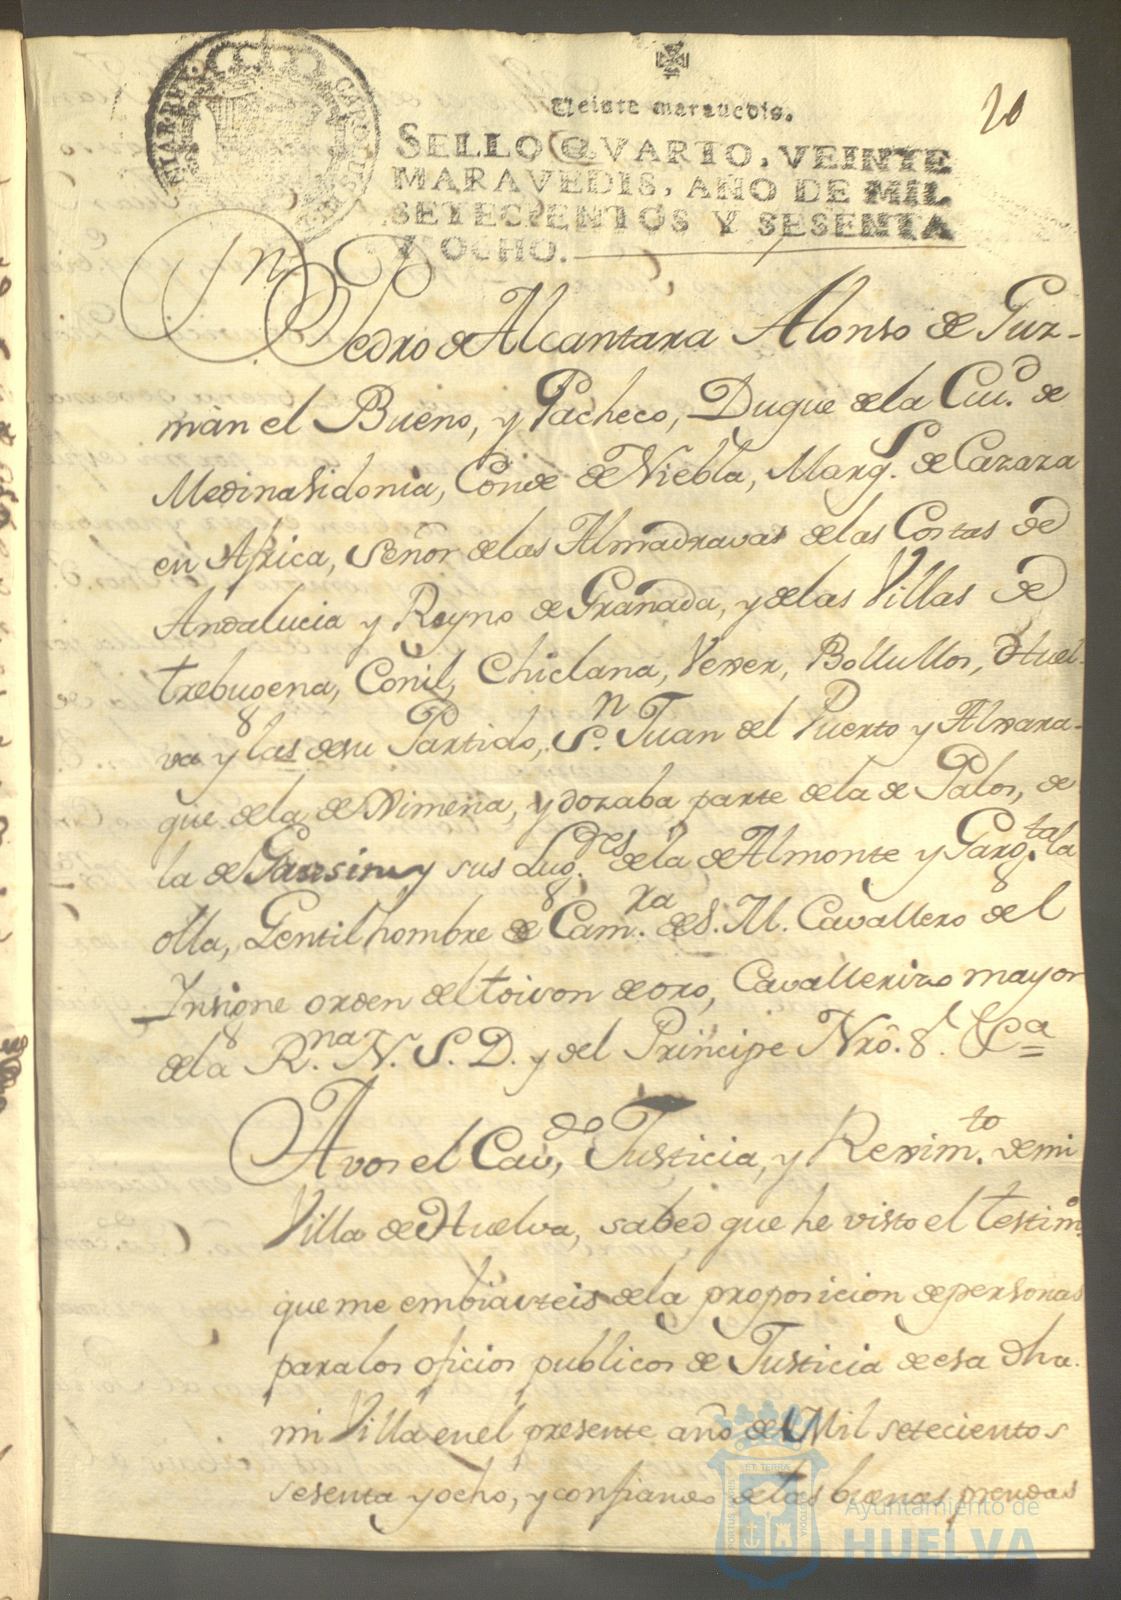 20
Veinte maravedis.
SELLO QVARTO, VEINTE
MARAVEDIS, AÑO DE MIL
SETECIENTOS Y SESENTA
Y OCHO.
Dn Pedro de Alcantara Alonso de Guz-
màn el Bueno, y Pacheco, Duque de la Ciud. de
Medinasidonia, Conde de Niebla, Marqs. de Cazaza
en Africa, Señor de las Almadravas de las Costas de
Andalucia y Reyno de Granada, y de las Villas de
trebugena, Conil, Chiclana, Vexer, Bollullos, Huel-
va y las de su Partido, Sn. Juan del Puerto y Alxara-
que de la de Ximena, y dozaba parte de la de Palos, de
la de Gausin y sus Lugres. de la de Almonte y Gargtal. la
olla, Gentil hombre de Camra. de S. M. Cavallero del
Insigne orden del toison de oro, Cavallerizo mayor
de la Rna. N. S. D. y del Principe Nrô. Sr. &Ca
A vos el Cavdo, Justicia, y Reximto. de mi
Villa de Huelva, sabed que he visto el testimo.
que me embiasteis de la proposicion de personas
para los oficios publicos de Justicia de esa dha.
mi Villa en el presente año de Mil setecientos
sesenta y ocho, y confiando de las buenas prendas
Ayuntamiento de
HUELVA